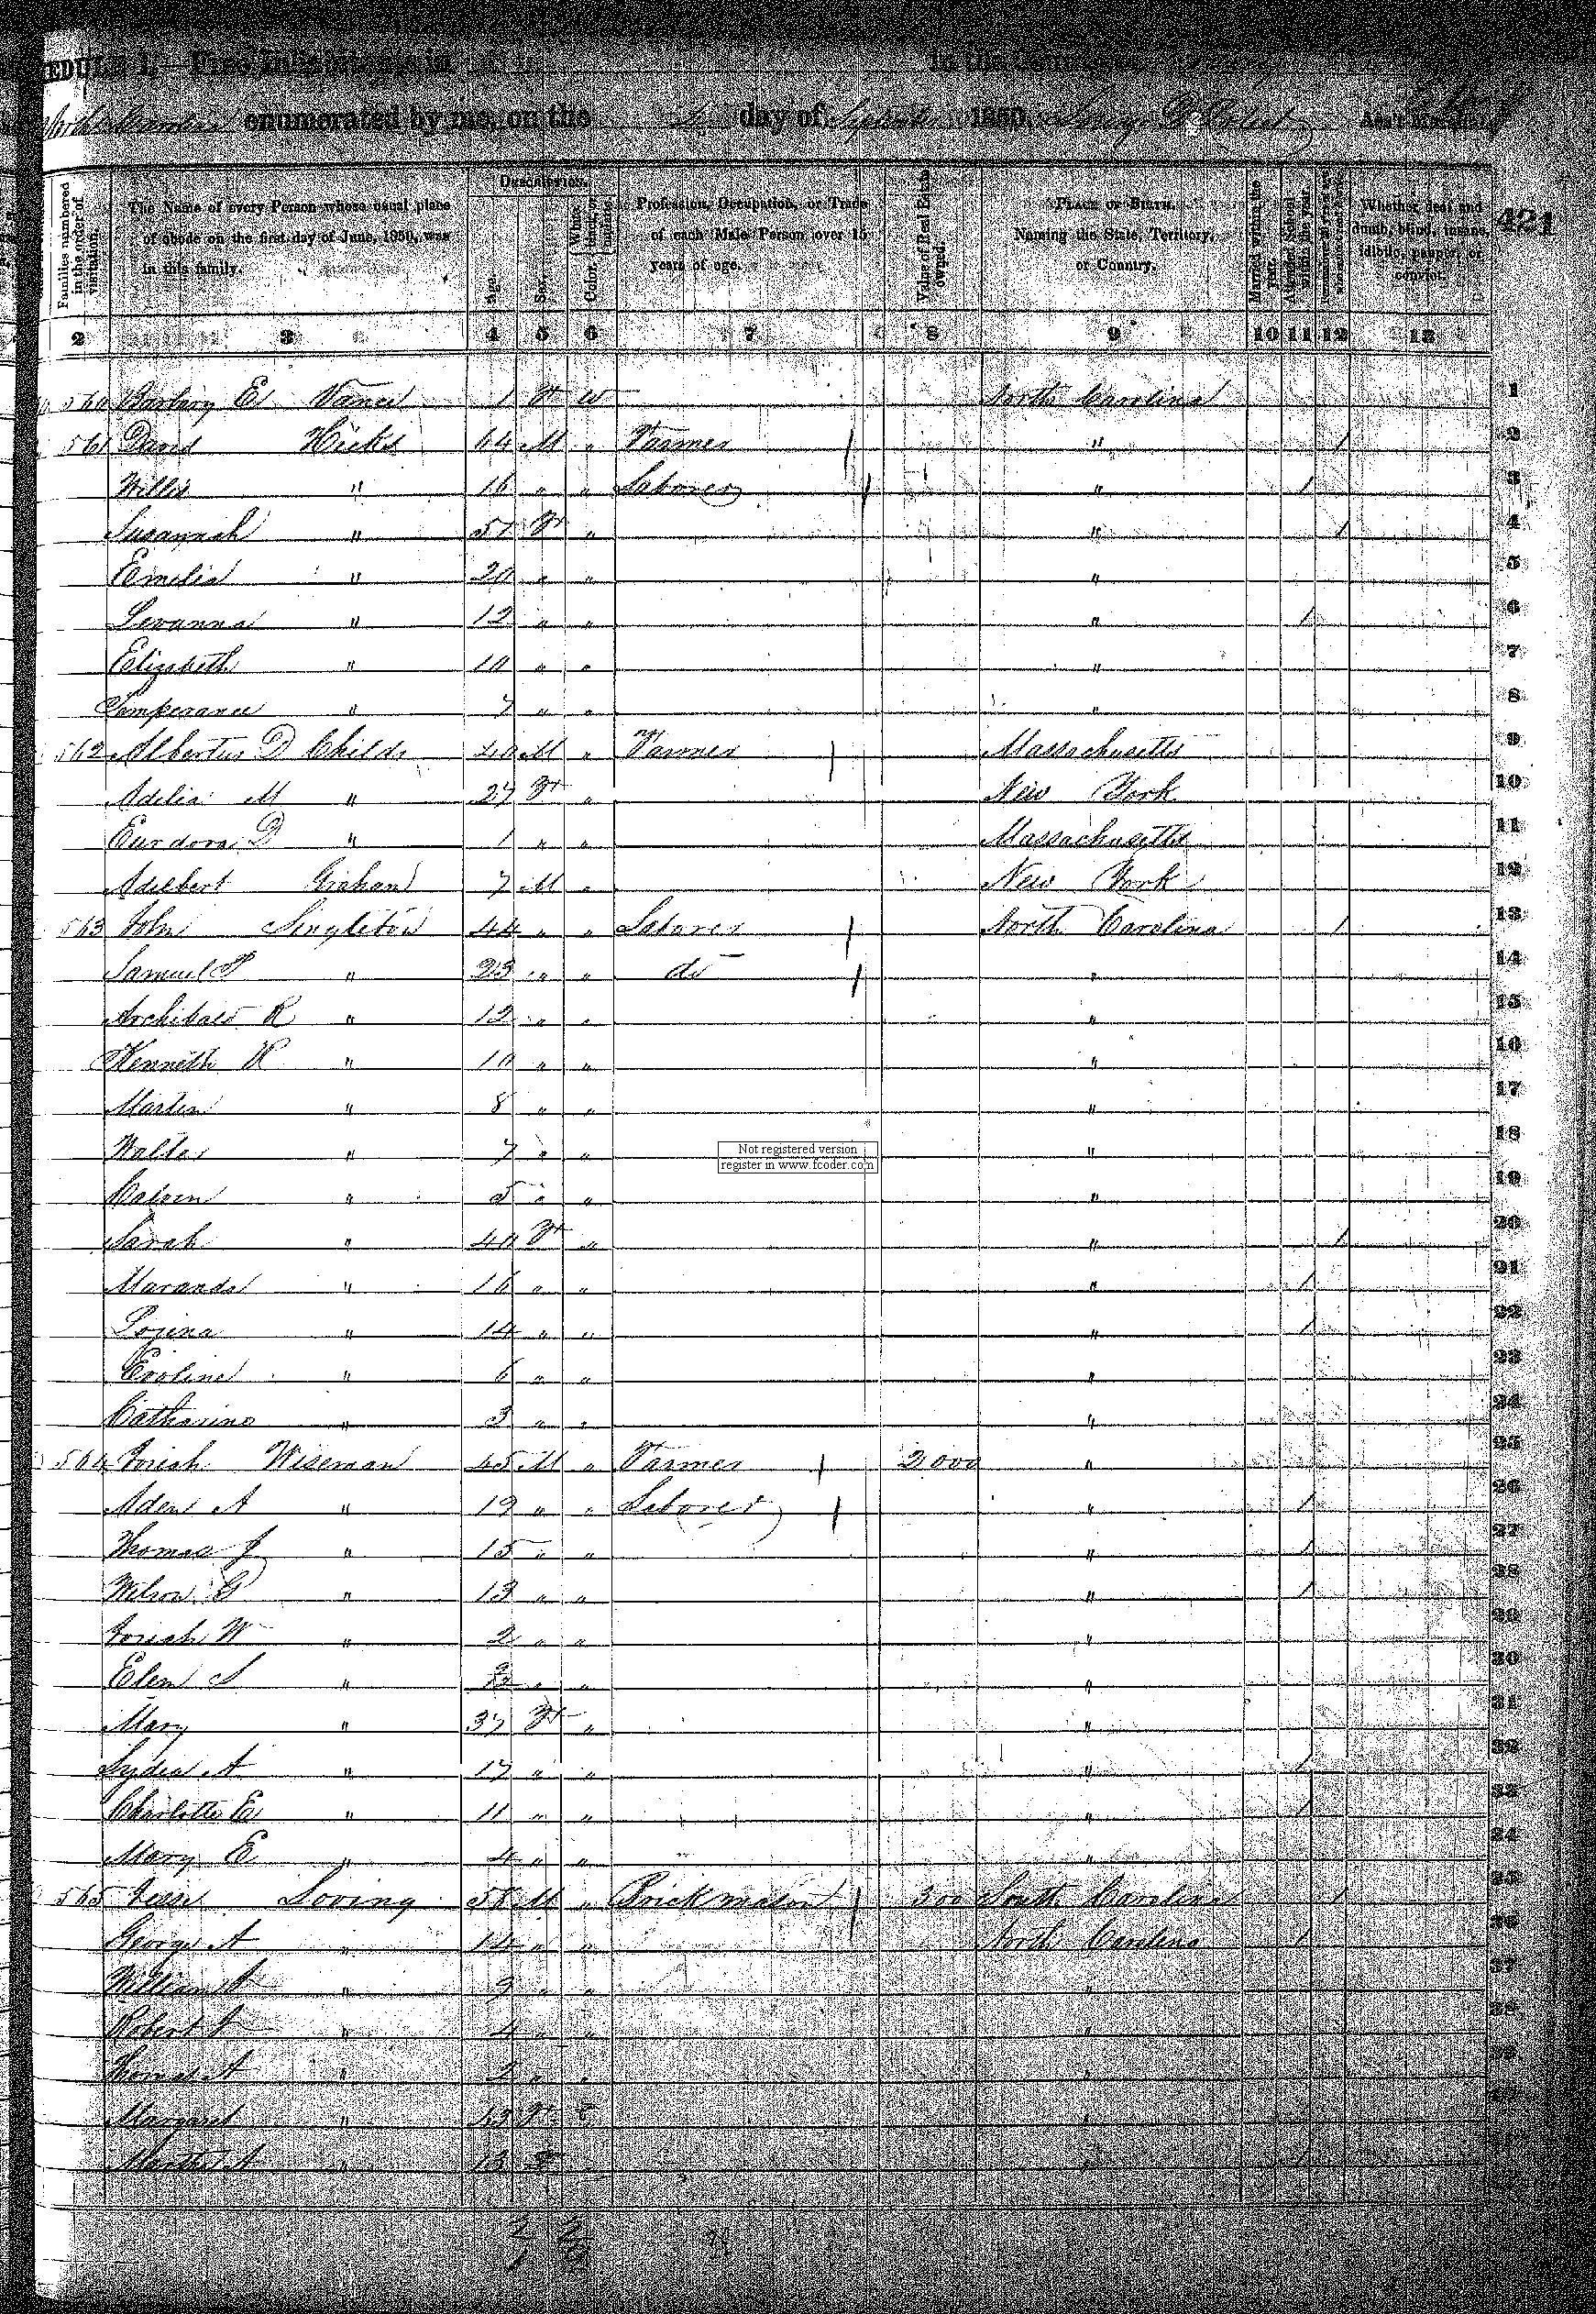 EDULE I.
enumerated by me, on the day of 1850. Ass't Marshal
Families numbered in the order of visitation.
The Name of every Person whose usual place of abode on the first day of June, 1850, was in this family.
Description.
Age.
Sex.
Color.
Profession, Occupation, or Trade of each Male Person over 15 years of age.
Value of Real Estate owned.
Place of Birth. Naming the State, Territory, or Country.
Married within the year.
Attended School within the year.
Whether deaf and dumb, blind, insane, idiotic, pauper, or convict.
421
2 3 4 5 6 7 8 9 10 11 12 13
560 E Vance 1 F W North Carolina 1
561 David Hicks 64 M " Farmer " 1 2
Willis " 16 " " Laborer " 1 3
Susannah " 51 F " " 1 4
Emelia " 20 " " " 5
Levanna " 12 " " " 1 6
Elizabeth " 10 " " " 7
Temperance " 7 " " " 8
562 Albertus D Childs 40 M " Farmer Massachusetts 9
Adelia M " 27 F " New York 10
Eurdora D " 1 " " Massachusetts 11
Adelbert Graham 7 M " New York 12
563 John Singleton 44 " " Laborer North Carolina 1 13
Samuel P " 23 " " do " 14
Archibald R " 12 " " " 15
Kenneth H " 10 " " " 16
Martin " 8 " " " 17
Walter " 7 " " " 18
Calven " 5 " " " 19
Sarah " 40 F " " 1 20
Maranda " 16 " " " 1 21
" 14 " " " 1 22
Evoline " 6 " " " 23
Catharine " 3 " " " 24
564 Josiah Wiseman 45 M " Farmer 2000 " 25
Aden A " 19 " " Laborer " 1 26
Thomas J " 15 " " " 1 27
Wilson G " 13 " " " 1 28
Josiah W " 2 " " " 29
Elen S " " " " 30
Mary " 37 F " " 31
Lydia A " 17 " " " 1 32
Charlotte E " 11 " " " 1 33
Mary E " 4 " " " 34
565 Jesse Loving 58 M " Brick mason 300 South Carolina 1 35
George A " 14 " " North Carolina 1 36
William " 9 " " " 37
Robert " 4 " " " 38
Thomas A " 2 " " " 39
Margaret " 43 F "
Martha A " 13
Not registered version
register in www.fcoder.com